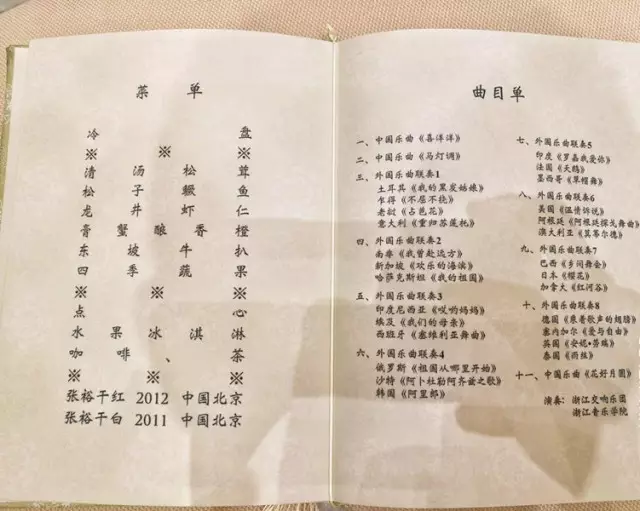 菜 单
冷 盘
※ ※ ※
清 汤 松 茸
松 子 鳜 鱼
龙 井 虾 仁
膏 蟹 酿 香 橙
东 坡 牛 扒
四 季 蔬 果
※ ※ ※
点 心
水 果 冰 淇 淋
咖 啡 、 茶
※ ※ ※
张裕干红 2012 中国北京
张裕干白 2011 中国北京
曲目单
一、中国乐曲《喜洋洋》
二、中国乐曲《马灯调》
三、外国乐曲联奏1
土耳其《我的黑发姑娘》
乍得《不屈不挠》
老挝《占芭花》
意大利《重归苏莲托》
四、外国乐曲联奏2
南非《我曾赴远方》
新加坡《欢乐的海滨》
哈萨克斯坦《我的祖国》
五、外国乐曲联奏3
印度尼西亚《哎哟妈妈》
埃及《我们的母亲》
西班牙《塞维利亚舞曲》
六、外国乐曲联奏4
俄罗斯《祖国从哪里开始》
沙特《阿卜杜勒阿齐兹之歌》
韩国《阿里郎》
七、外国乐曲联奏5
印度《罗嘉我爱你》
法国《天鹅》
墨西哥《草帽舞》
八、外国乐曲联奏6
美国《温情诉说》
阿根廷《阿根廷探戈舞曲》
澳大利亚《莫尔德》
九、外国乐曲联奏7
巴西《乡间舞会》
日本《樱花》
加拿大《红河谷》
十、外国乐曲联奏8
德国《乘着歌声的翅膀》
塞内加尔《爱与自由》
英国《安妮·劳瑞》
泰国《雨丝》
十一、中国乐曲《花好月圆》
演奏：浙江交响乐团
浙江音乐学院